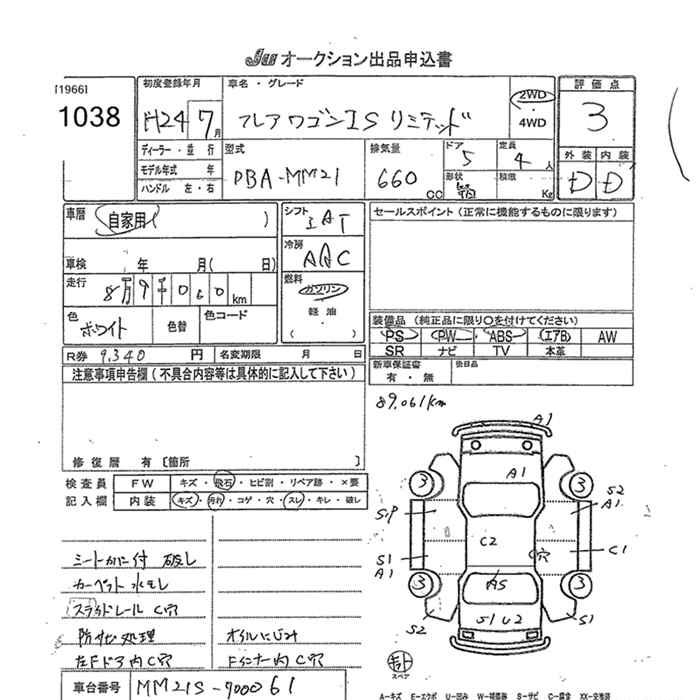 Ju オークション出品申込書
[1966]
1038
初度登録年月
H24 7月
車名・グレード
フレアワゴン IS リミテッド
2WD
・
4WD
評価点
3
ディーラー・並行
モデル年式 年
ハンドル 左・右
型式
DBA-MM21
排気量
660 CC
ドア
5
定員
4 人
形状
積限
Kg
外装 内装
D D
車歴
自家用( )
車検 年 月( 日)
走行
8万9千060km
色
ホワイト
色替
色コード
シフト
IAT
冷房
AAC
燃料
ガソリン
軽油
( )
セールスポイント(正常に機能するものに限ります)
装備品(純正品に限り○を付けてください)
PS PW ABS エアB AW
SR ナビ TV 本革
R券 9,340 円 名変期限 月 日
新車保証書
有・無
後日品
注意事項申告欄(不具合内容等は具体的に記入して下さい)
修復歴 有〔箇所 〕
89,061km
検査員
記入欄
FW キズ・飛石・ヒビ割・リペア跡・×要
内装 キズ・汚れ・コゲ・穴・スレ・キレ・破し
シートカバー付 破し
カーペット 水モレ
スライドレール C穴
防サビ処理 オイルにじみ
左Fドア内C穴 Fインナー内C穴
車台番号 MM21S-700061
A1
3 A1 3
S2
A1
S1P
C2
穴
C1
S1
A1
3 AS 3
S2 S1U2 S1
スペア
A-キズ E-エクボ U-凹み W-補修跡 S-サビ C-腐食 XX-交換済